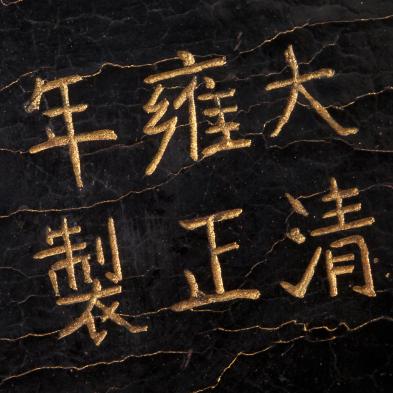 大清
雍正
年製